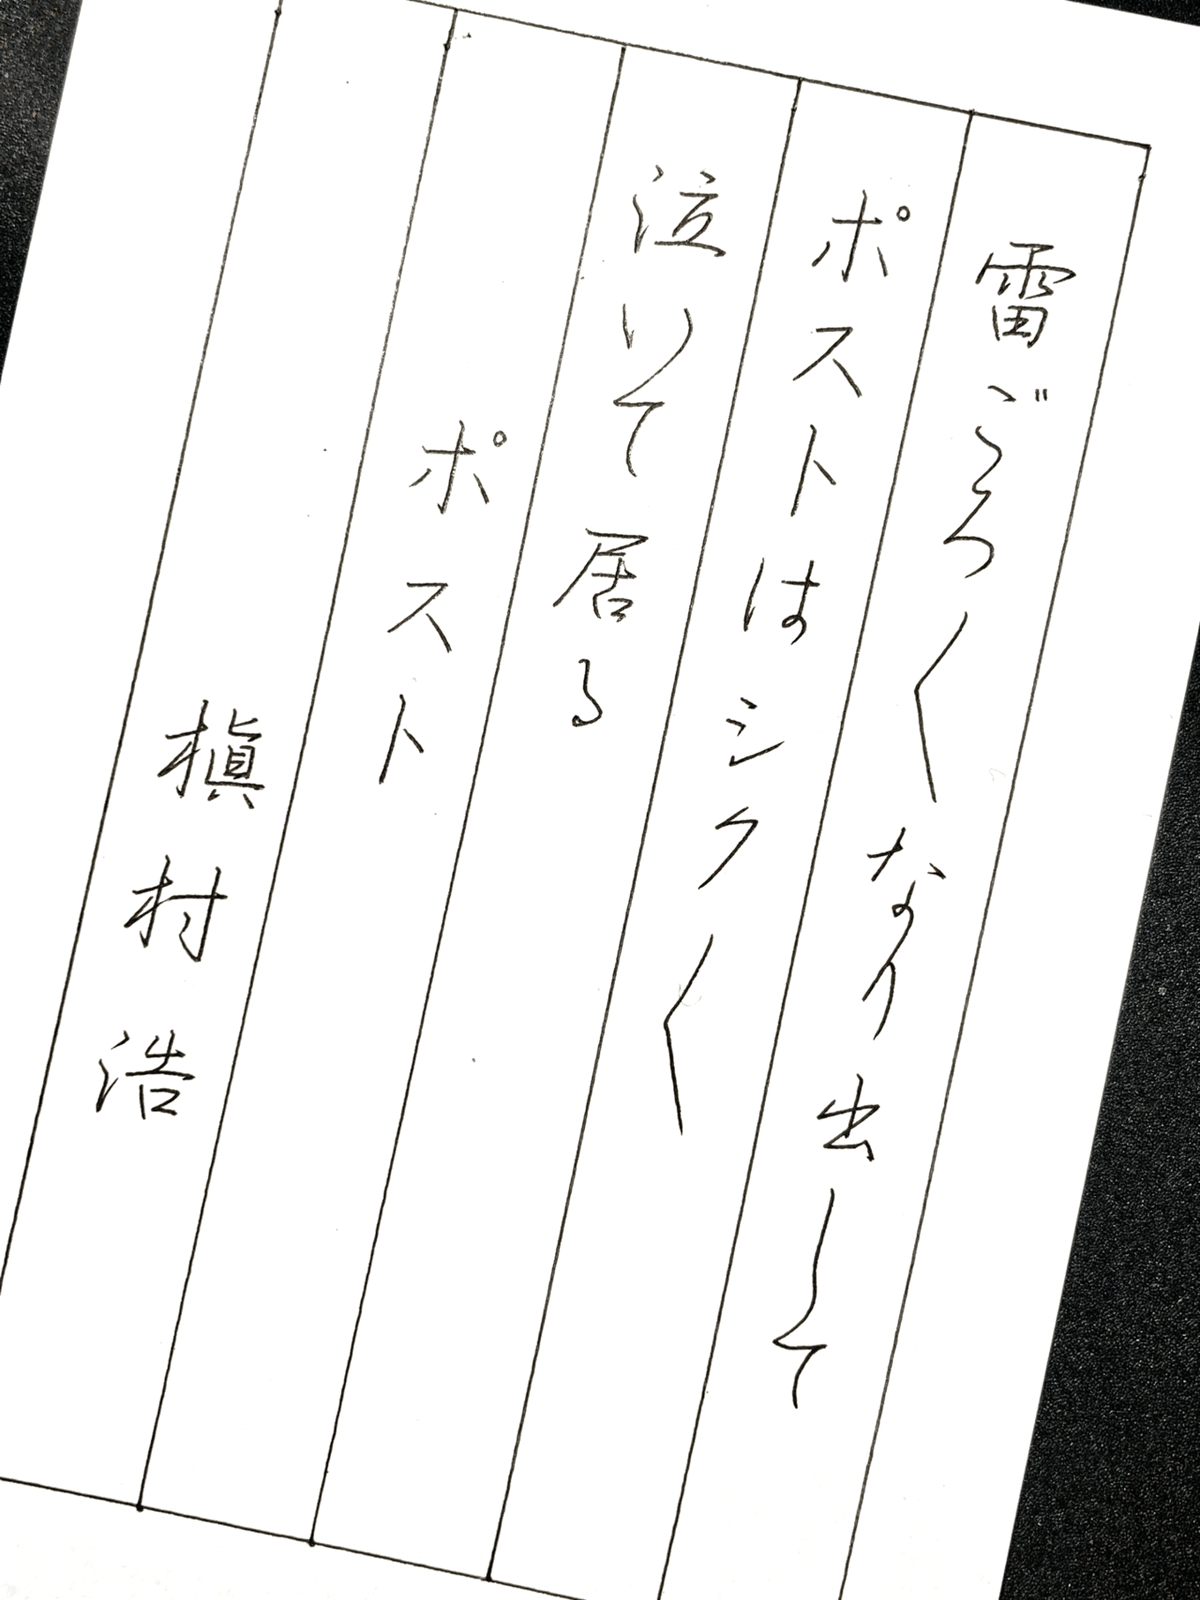 雷ごろ〱なり出して
ポストはシク〱
泣いて居る
ポスト
槙村浩